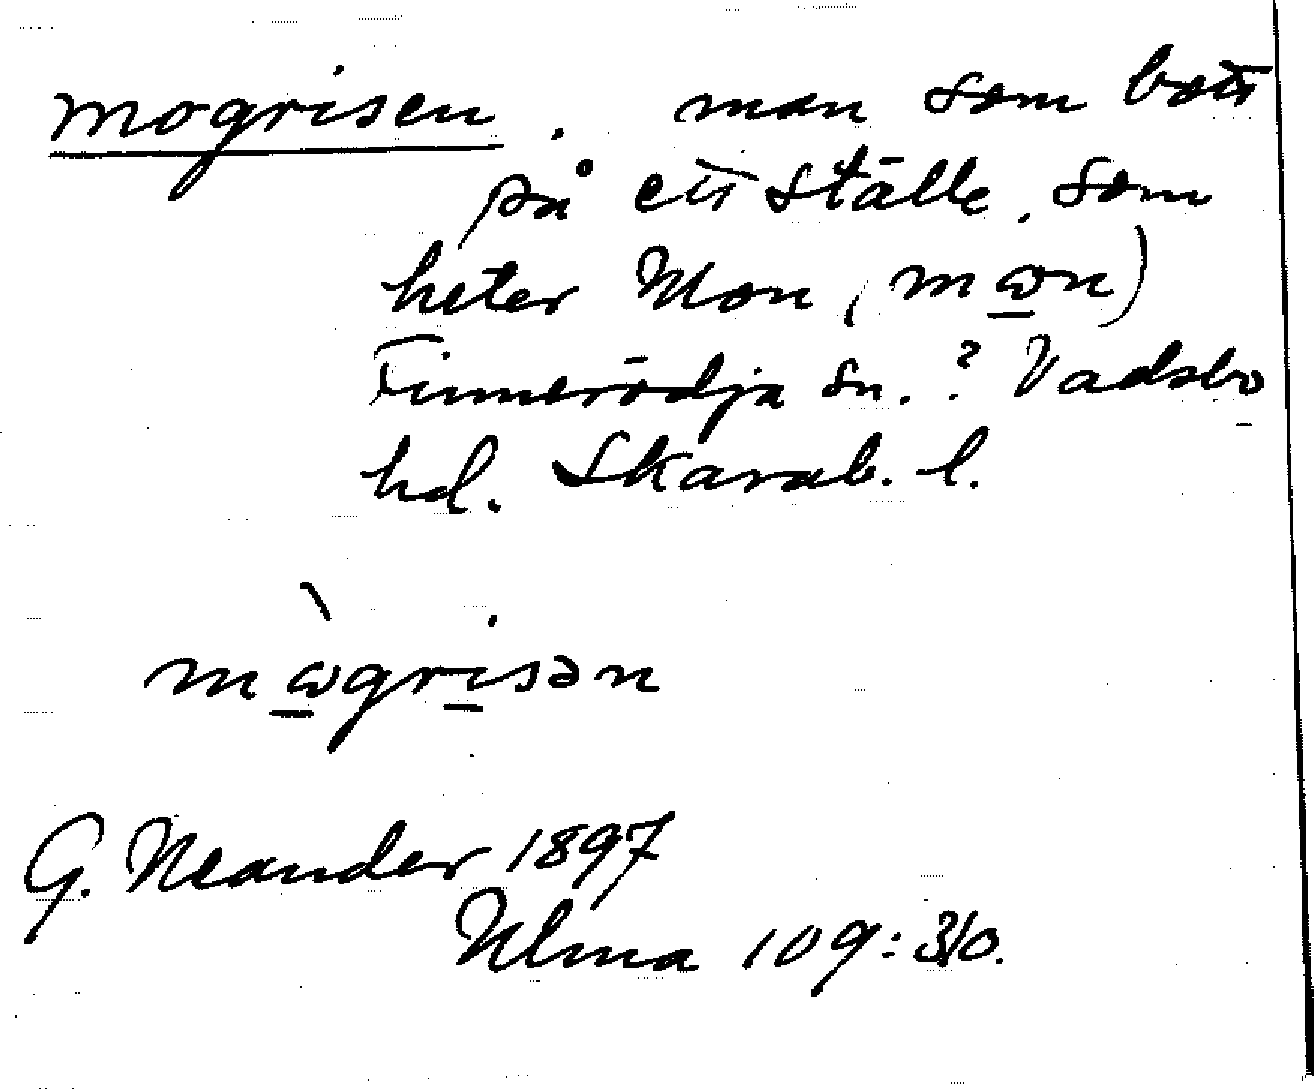 mogrisen. man som bott
på ett ställe, som
heter Mon (mωn)
Finnerödja sn.? Vadsbo
hd. Skarab. l.
mὼgrisən
G. Neander 1897
Ulma 109:310.